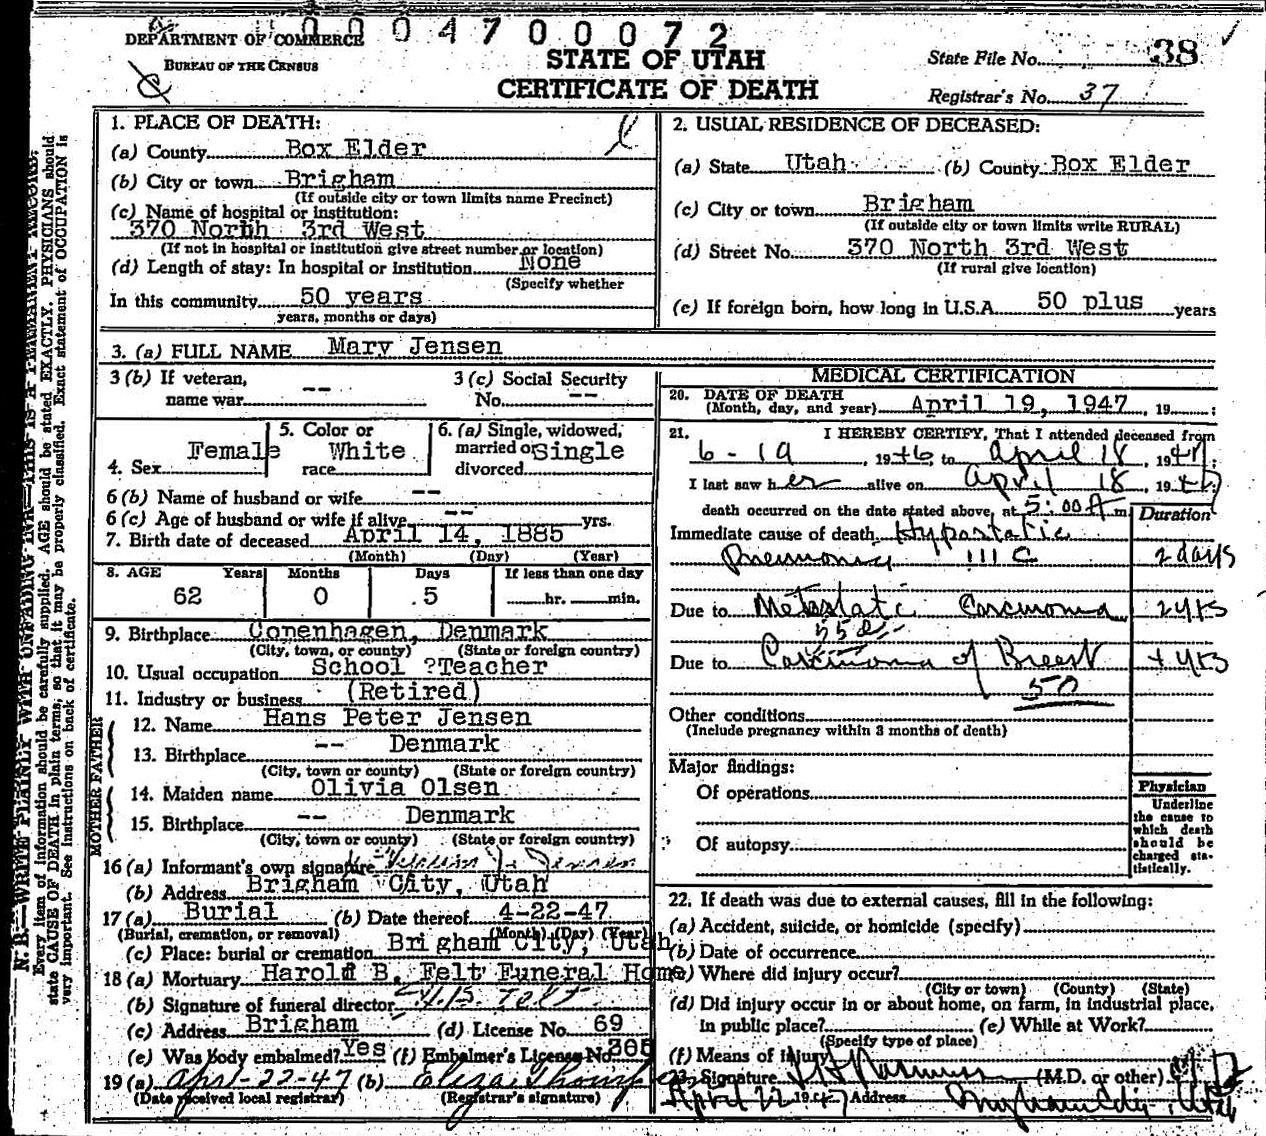 000470072
DEPARTMENT OF COMMERCE
BUREAU OF THE CENSUS
STATE OF UTAH
CERTIFICATE OF DEATH
State File No. 38
Registrar's No. 37
N. B.—WRITE PLAINLY WITH UNFADING INK—THIS IS A PERMANENT RECORD.
Every item of information should be carefully supplied. AGE should be stated EXACTLY. PHYSICIANS should
state CAUSE OF DEATH in plain terms, so that it may be properly classified. Exact statement of OCCUPATION is
very important. See instructions on back of certificate.
1. PLACE OF DEATH:
(a) County Box Elder
(b) City or town Brigham
(If outside city or town limits name Precinct)
(c) Name of hospital or institution:
370 North 3rd West
(If not in hospital or institution give street number or location)
(d) Length of stay: In hospital or institution None
(Specify whether
In this community 50 years
years, months or days)
2. USUAL RESIDENCE OF DECEASED:
(a) State Utah (b) County Box Elder
(c) City or town Brigham
(If outside city or town limits write RURAL)
(d) Street No. 370 North 3rd West
(If rural give location)
(e) If foreign born, how long in U.S.A 50 plus years
3. (a) FULL NAME Mary Jensen
3 (b) If veteran, name war --
3 (c) Social Security No. --
4. Sex Female
5. Color or race White
6. (a) Single, widowed, married or divorced Single
6 (b) Name of husband or wife --
6 (c) Age of husband or wife if alive -- yrs.
7. Birth date of deceased April 14, 1885
(Month) (Day) (Year)
8. AGE Years Months Days If less than one day
62 0 5 hr. min.
9. Birthplace Copenhagen, Denmark
(City, town, or county) (State or foreign country)
10. Usual occupation School ?Teacher
11. Industry or business (Retired)
FATHER
12. Name Hans Peter Jensen
13. Birthplace -- Denmark
(City, town or county) (State or foreign country)
MOTHER
14. Maiden name Olivia Olsen
15. Birthplace -- Denmark
(City, town or county) (State or foreign country)
16 (a) Informant's own signature Jensen
(b) Address Brigham City, Utah
17 (a) Burial (b) Date thereof 4-22-47
(Burial, cremation, or removal) (Month) (Day) (Year)
(c) Place: burial or cremation Brigham City, Utah
18 (a) Mortuary Harold B. Felt Funeral Home
(b) Signature of funeral director H.B. Felt
(c) Address Brigham (d) License No. 69
(e) Was body embalmed? Yes (f) Embalmer's License No. 305
19 (a) Apr-22-47 (b) Eliza
(Date received local registrar) (Registrar's signature)
MEDICAL CERTIFICATION
20. DATE OF DEATH
(Month, day, and year) April 19, 1947, 19 ;
21. I HEREBY CERTIFY, That I attended deceased from
6-19, 1946, to April 18, 1947;
I last saw her alive on April 18, 1947;
death occurred on the date stated above, at 5:00A m.
Duration
Immediate cause of death Hypostatic
Pneumonia 111 C 2 days
Due to Metastatic Carcinoma 2 yrs
55e
Due to Carcinoma of Breast yrs
50
Other conditions
(Include pregnancy within 3 months of death)
Major findings:
Of operations
Of autopsy
Physician
Underline
the cause to
which death
should be
charged sta-
tistically.
22. If death was due to external causes, fill in the following:
(a) Accident, suicide, or homicide (specify)
(b) Date of occurrence
(c) Where did injury occur?
(City or town) (County) (State)
(d) Did injury occur in or about home, on farm, in industrial place,
in public place? (e) While at Work?
(Specify type of place)
(f) Means of injury
23. Signature (M.D. or other)
April 22 1947 Address Brigham City, Utah